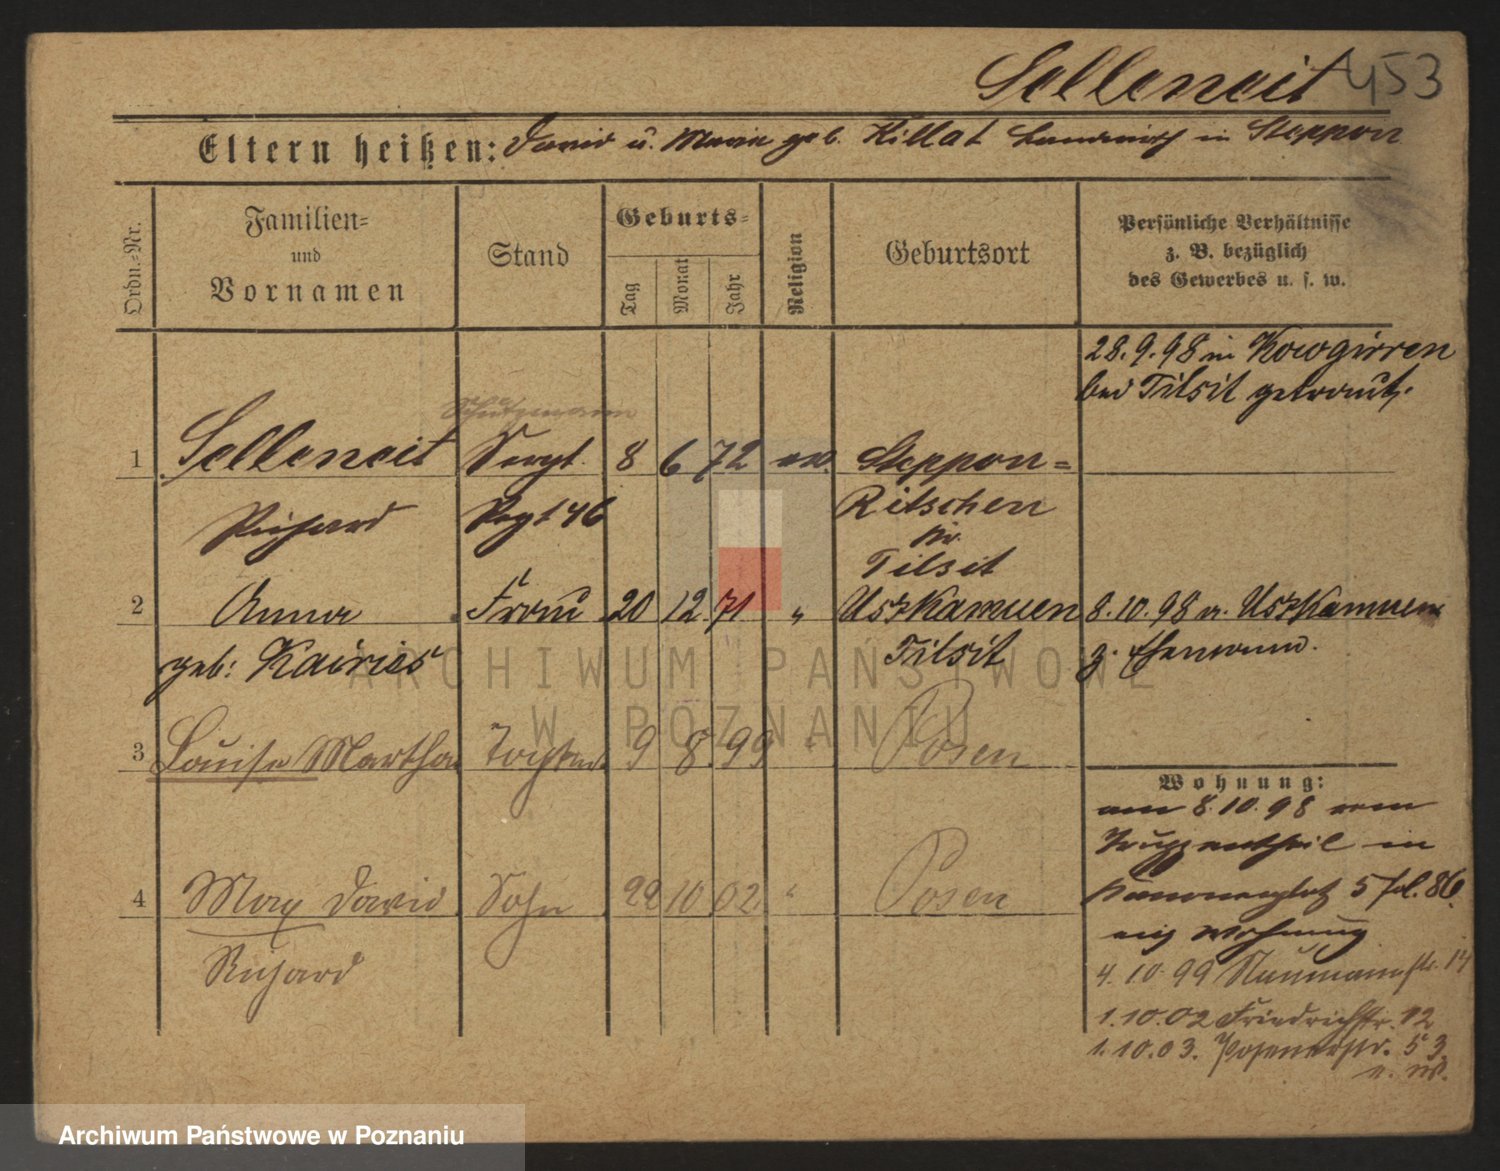 Selleneit 453
Eltern heißen: David u. Marie geb. Killat Landwirth in Steppon
Ordn.-Nr.
Familien-
und
Vornamen
Stand
Geburts-
Tag
Monat
Jahr
Religion
Geburtsort
Persönliche Verhältnisse
z. B. bezüglich
des Gewerbes u. s. w.
28.9.98 in Kowgirren
bei Tilsit getraut.
Schutzmann
1 Selleneit Sergt. 8 6 72 ev. Steppon=
Richard Regt 46 Ritschen
Kr.
Tilsit
2 Anna Frau 20 12. 71 " Uszkamuen 8.10.98 a. Uszkamuen
geb: Kairies Tilsit z. Ehemann.
3 Louise Martha Tochter 9 8. 99 " Posen
Wohnung:
am 8.10.98 vom
Truppentheil in
5 fol. 86.
eig Wohnung
4 Max David Sohn 22 10 02. " Posen
Richard
4.10.99 Naumannstr. 14
1.10.02 Friedrichstr. 12
1.10.03. Posenerstr. 53.
ARCHIWUM PAŃSTWOWE
W POZNANIU
Archiwum Państwowe w Poznaniu